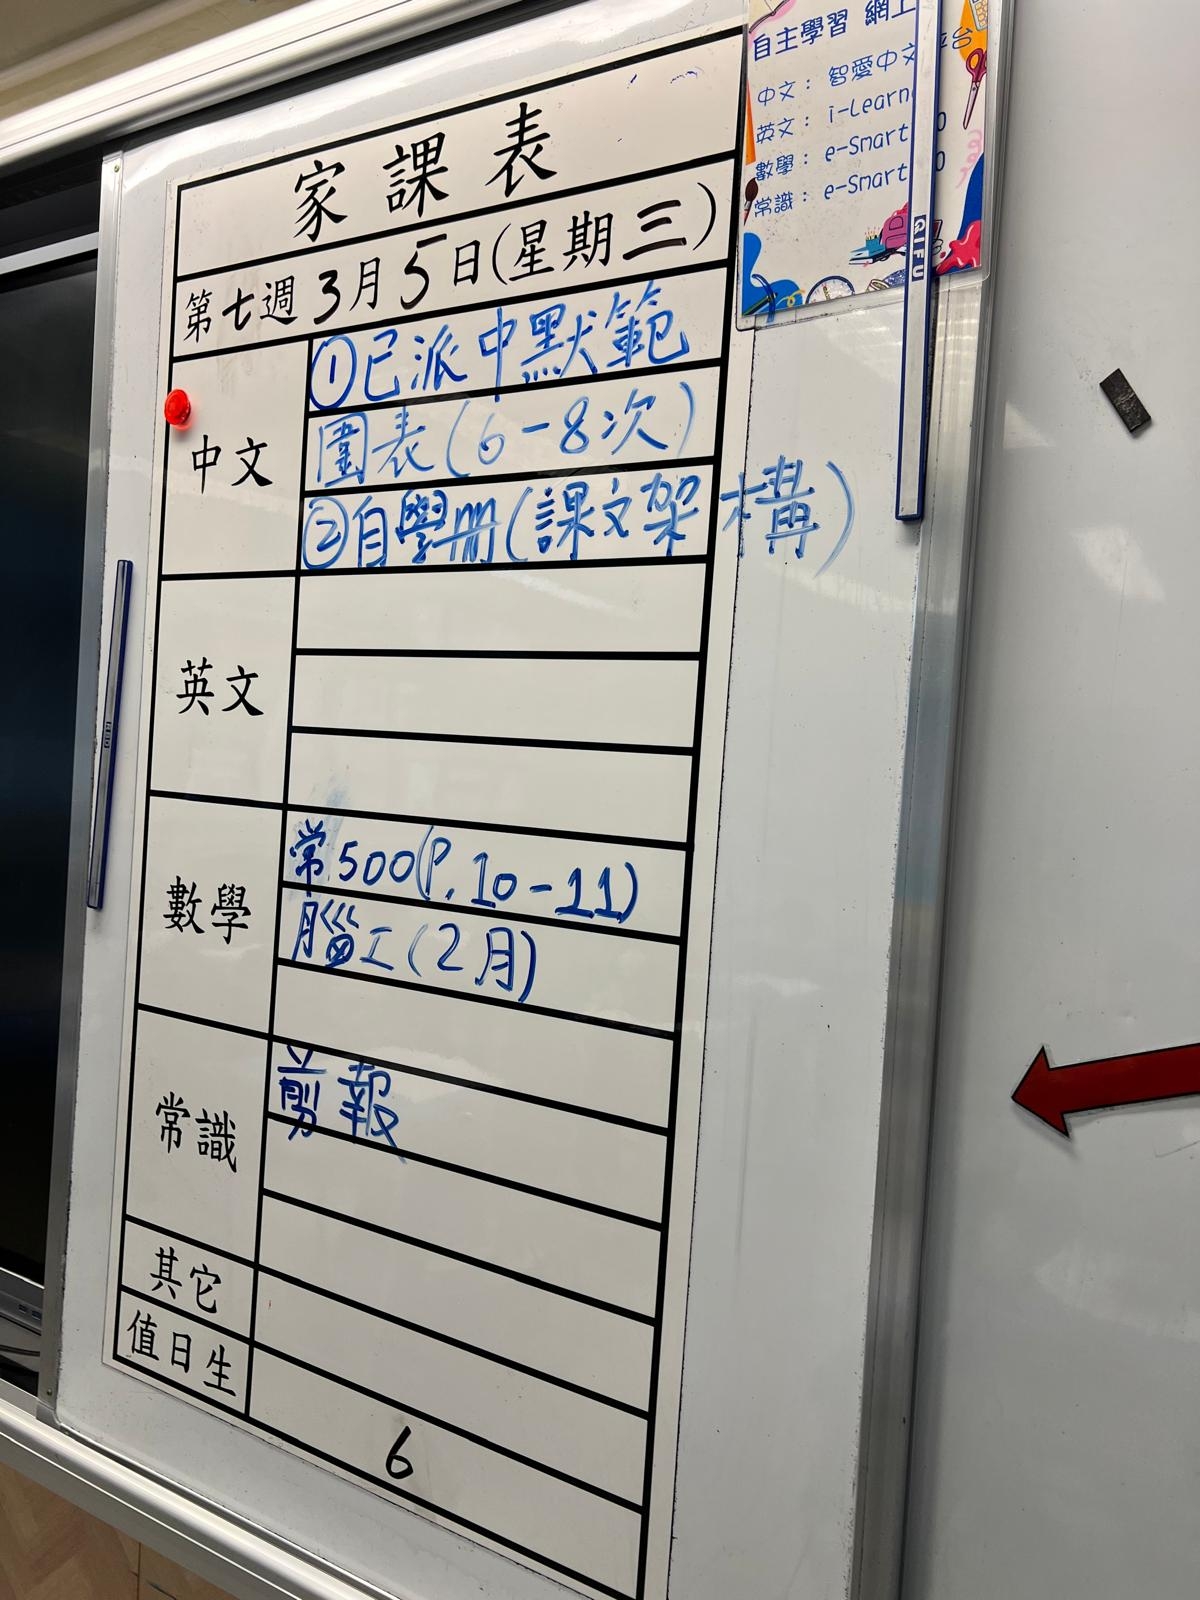 家課表
第七週3月5日(星期三)
中文
①已派中默範
圍表(6-8次)
②自學冊(課文架構)
英文
數學
常500(P.10-11)
腦工(2月)
常識
剪報
其它
值日生
6
自主學習 網上
中文： 智愛中文平台
英文： i-Learn
數學： e-Smart
常識： e-Smart
QIFU